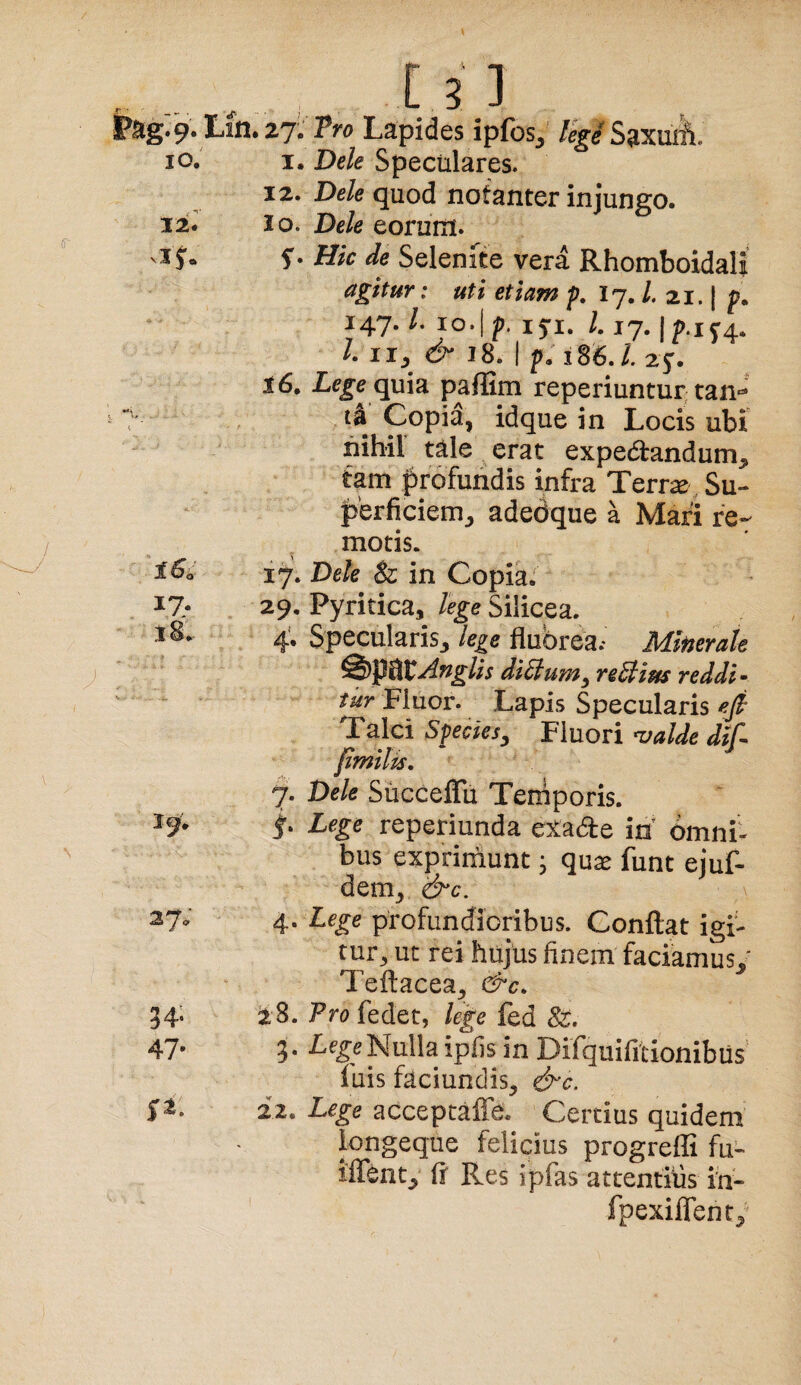 [ 3 ]
Pag. 9. Lin. 27. Pro Lapides ipſos, lege Saxum.
10. 1. Dele Speculares.
12. Dele quod notanter injungo.
12. 10. Dele eorum.
15. 5. Hic de Selenite verâ Rhomboidali
agitur: uti etiam p. 17. l. 21. | p.
147. l. 10. | p. 151. l. 17. | p. 154.
l. 11, & 18. | p. 186. l. 25.
16. Lege quia paſſim reperiuntur tan-
tâ Copiâ, idque in Locis ubi
nihil tale erat expectandum,
tam profundis infra Terræ Su-
perficiem, adeòque à Mari re-
motis.
16. 17. Dele & in Copia.
17. 29. Pyritica, lege Silicea.
18. 4. Specularis, lege fluòrea. Minerale
Spar Anglis dictum, rectius reddi-
tur Fluor. Lapis Specularis eſt
Talci Species, Fluori valde diſ-
ſimilis.
7. Dele Succeſſu Temporis.
19. 5. Lege reperiunda exacte in omni-
bus exprimunt; quæ ſunt ejuſ-
dem, &c.
27. 4. Lege profundioribus. Conſtat igi-
tur, ut rei hujus finem faciamus,
Teſtacea, &c.
34. 28. Pro ſedet, lege ſed &.
47. 3. Lege Nulla ipſis in Diſquiſitionibus
ſuis faciundis, &c.
52. 22. Lege acceptaſſe. Certius quidem
longeque felicius progreſſi fu-
iſſent, ſi Res ipſas attentiùs in-
ſpexiſſent,